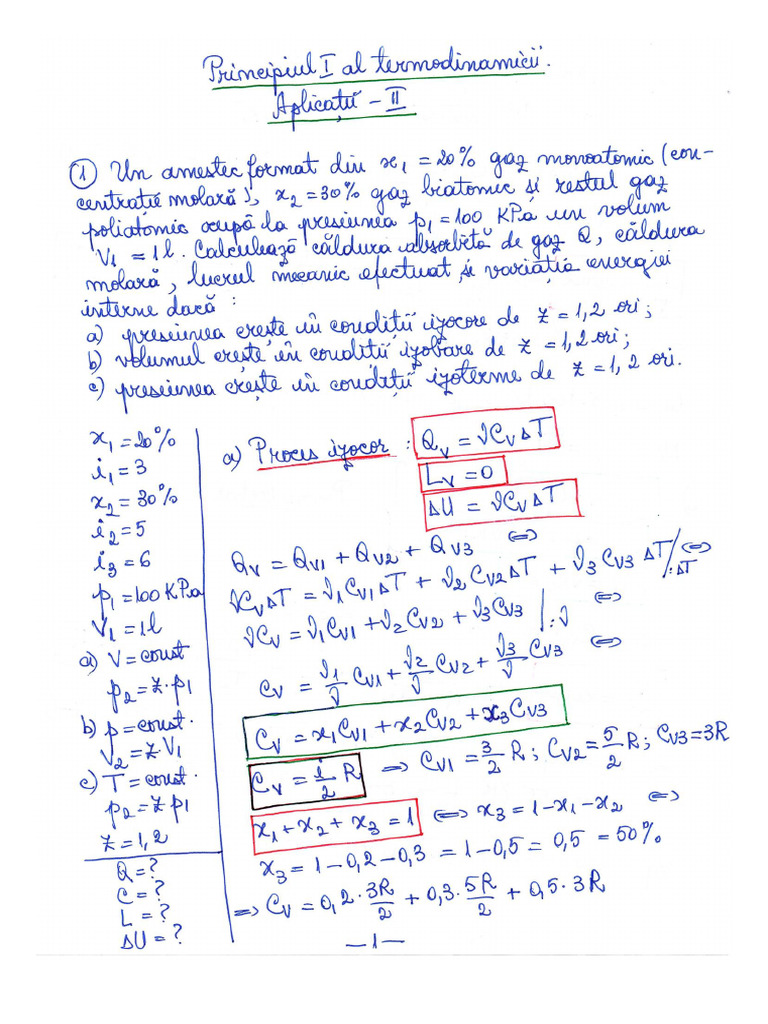 Principiul I al termodinamicii.
Aplicații - II
① Un amestec format din x₁ = 20% gaz monoatomic (con-
centrație molară), x₂ = 30% gaz biatomic și restul gaz
poliatomic ocupă la presiunea p₁ = 100 KPa un volum
V₁ = 1 l. Calculează căldura absorbită de gaz Q, căldura
molară, lucrul mecanic efectuat și variația energiei
interne dacă :
a) presiunea crește în condiții izocore de z = 1,2 ori ;
b) volumul crește în condiții izobare de z = 1,2 ori ;
c) presiunea crește în condiții izoterme de z = 1,2 ori.
x₁ = 20%
i₁ = 3
x₂ = 30%
i₂ = 5
i₃ = 6
p₁ = 100 KPa
V₁ = 1 l
a) V = const
p₂ = z · p₁
b) p = const.
V₂ = z V₁
c) T = const.
p₂ = z p₁
z = 1,2
Q = ?
C = ?
L = ?
ΔU = ?
a) Proces izocor : Qᵥ = νCᵥΔT
Lᵥ = 0
ΔU = νCᵥΔT
Qᵥ = Qᵥ₁ + Qᵥ₂ + Qᵥ₃ ⇔
νCᵥΔT = ν₁Cᵥ₁ΔT + ν₂Cᵥ₂ΔT + ν₃Cᵥ₃ΔT /:ΔT ⇔
νCᵥ = ν₁Cᵥ₁ + ν₂Cᵥ₂ + ν₃Cᵥ₃ | :ν ⇔
Cᵥ = ν₁/ν Cᵥ₁ + ν₂/ν Cᵥ₂ + ν₃/ν Cᵥ₃ ⇔
Cᵥ = x₁Cᵥ₁ + x₂Cᵥ₂ + x₃Cᵥ₃
Cᵥ = i/2 R ⇒ Cᵥ₁ = 3/2 R ; Cᵥ₂ = 5/2 R ; Cᵥ₃ = 3R
x₁ + x₂ + x₃ = 1 ⇔ x₃ = 1 - x₁ - x₂ ⇔
x₃ = 1 - 0,2 - 0,3 = 1 - 0,5 = 0,5 = 50%
⇒ Cᵥ = 0,2 · 3R/2 + 0,3 · 5R/2 + 0,5 · 3R
— 1 —